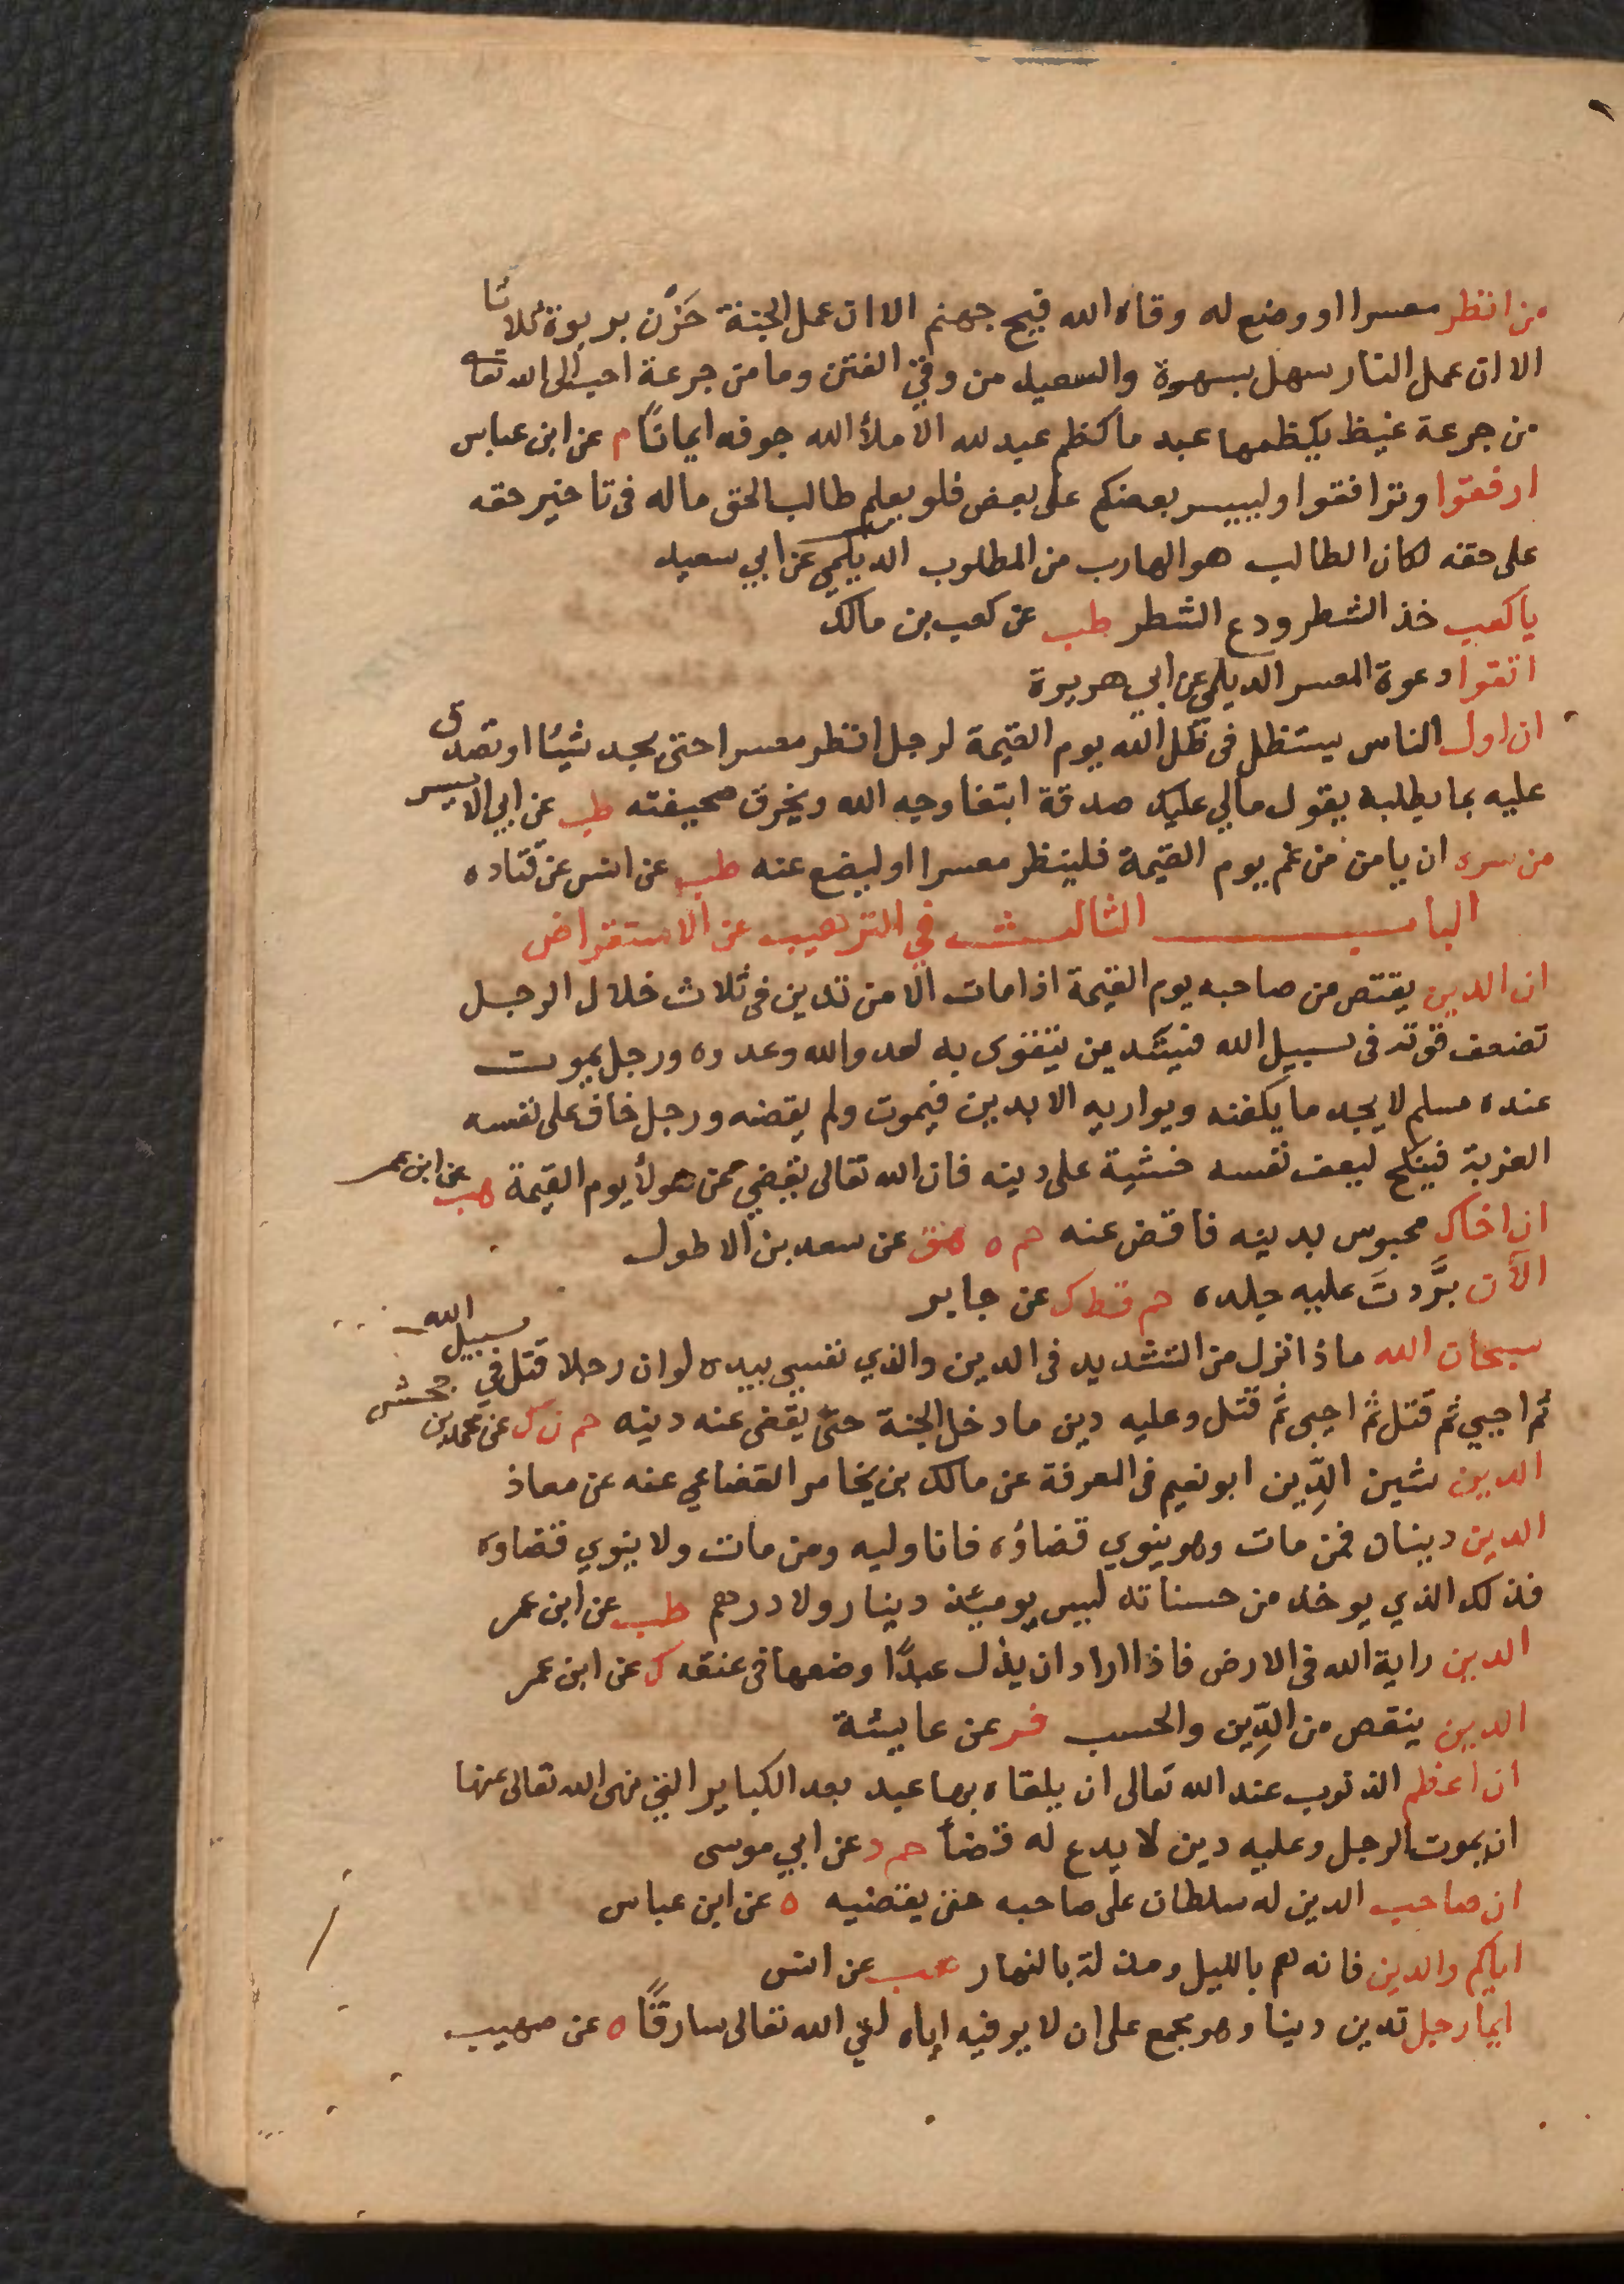 من انظر معسرا او وضع له وقاه الله فيح جهنم الا ان عمل الجنة حَزْن بربوة ثلاثا
الا ان عمل النار سهل بسهوة والسعيد من وقي الفتن وما من جرعة احب الى الله تعا
من جرعة غيظ يكظمها عبد ما كظم عبد لله الا ملأ الله جوفه ايمانًا م عن ابن عباس
ارفقوا وترافقوا ولييسر بعضكم على بعض فلو يعلم طالب الحق ماله فى تاخير حقه
على حقه لكان الطالب هو الهارب من المطلوب الديلمي عن ابي سعيد
يا كعب خذ الشطر ودع الشطر طب عن كعب بن مالك
اتقوا دعوة المعسر الديلمي عن ابي هريرة
ان اول الناس يستظل فى ظل الله يوم القيمة لرجل انظر معسرا حتى يجد شيئا او تصدق
عليه بما يطلبه يقول مالي عليك صدقة ابتغا وجه الله ويخرق صحيفته طب عن ابي اليسر
من سره ان يامن من غم يوم القيمة فلينظر معسرا او ليضع عنه طب عن انس عن قتاده
الباب الثالث في الترهيب عن الاستقراض
ان الدين يقتص من صاحبه يوم القيمة اذا مات الا من تدين فى ثلاث خلال الرجل
تضعف قوته فى سبيل الله فيستدين يتقوى به لعدو الله وعدوه ورجل يموت
عنده مسلم لا يجد ما يكفنه ويواريه الا بدين فيموت ولم يقضه ورجل خاف على نفسه
العزبة فينكح ليعف نفسه خشية على دينه فان الله تعالى يقضي عن هولأ يوم القيمة هب عن ابن عمر
ان اخاك محبوس بدينه فاقض عنه حم ه هق عن سعد بن الاطول
الآن بَرَّدتَ عليه جلده حم قط ك عن جابر
سبحان الله ماذا انزل من التشديد فى الدين والذي نفسي بيده لو ان رجلا قتل في سبيل الله
ثم احيي ثم قتل ثم احيى ثم قتل وعليه دين ما دخل الجنة حتى يقضى عنه دينه حم ن ك عن محمد بن جحش
الدين شين الدِّين ابو نعيم فى المعرفة عن مالك بن يخامر القضاعي عنه عن معاذ
الدين دينان فمن مات وهو ينوي قضاؤه فانا وليه ومن مات ولا ينوي قضاوه
فذلك الذي يوخذ من حسناته ليس يوميئذ دينار ولا درهم طب عن ابن عمر
الدين راية الله فى الارض فاذا اراد ان يذل عبدًا وضعها فى عنقه ك عن ابن عمر
الدين ينقص من الدِّين والحسب فر عن عايشة
ان اعظم الذنوب عند الله تعالى ان يلقاه بها عبد بعد الكباير التي نهى الله تعالى عنها
ان يموت الرجل وعليه دين لا يدع له قضأ حم د عن ابي موسى
ان صاحب الدين له سلطان على صاحبه حتى يقضيه ه عن ابن عباس
اياكم والدين فانه هم بالليل ومذلة بالنهار هب عن انس
ايما رجل تدين دينا وهو مجمع على ان لا يوفيه اياه لقي الله تعالى سارقًا ه عن صهيب